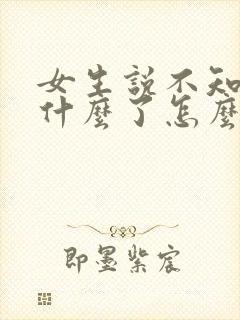 女生説不知
什麼了怎麼
即墨紫宸